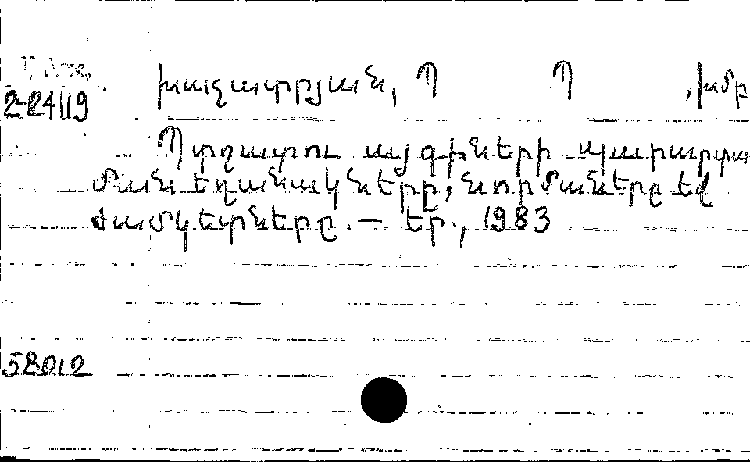 2-24119
Խաչատրյան, Պ Պ ,խմբ
Պտղատու այգիների պարարտա
ման եղանակները, նորմաները եվ
ժամկետները. — Եր., 1983
58012